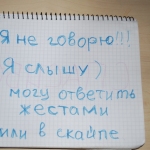 Я не говорю!!!
Я слышу)
могу ответить
жестами
или в скайпе